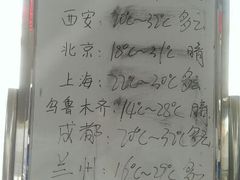 西安: 20℃~32℃ 多云
北京: 18℃~31℃ 晴
上海: 22℃~30℃ 多云
乌鲁木齐: 14℃~28℃ 晴
成都: 20℃~32℃ 多云
兰州: 16℃~29℃ 多云